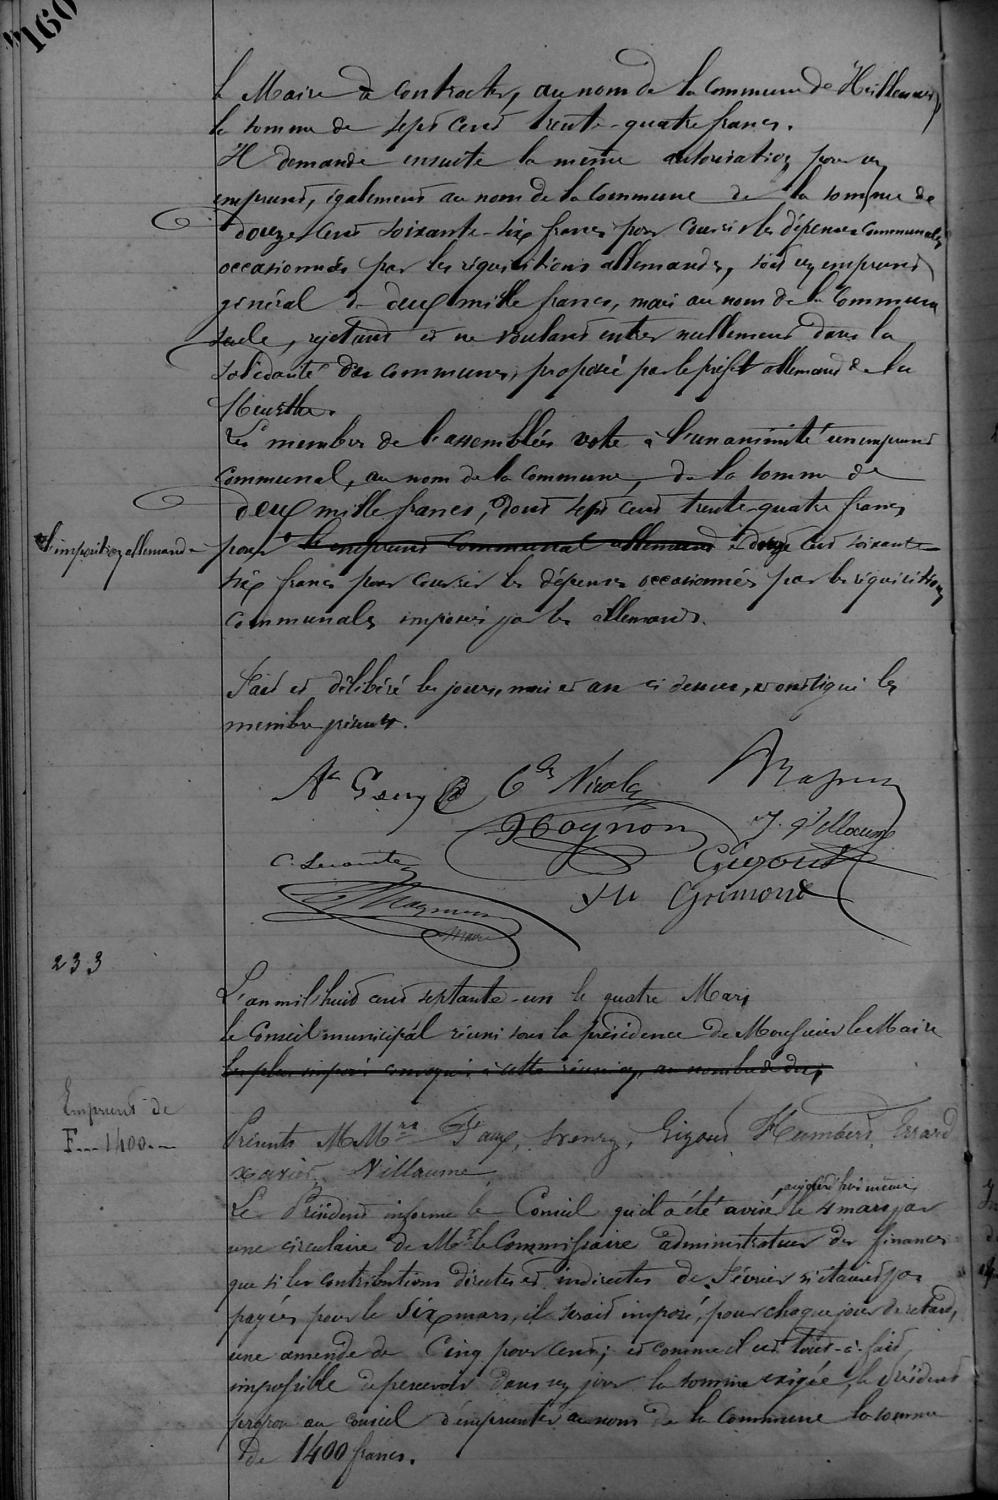 160
le Maire à contracter, au nom de la commune de Heillecourt,
la somme de sept cent trente-quatre francs.
Il demande ensuite la même autorisation pour un
emprunt, également au nom de la commune de la somme de
douze cent soixante-six francs pour couvrir les dépenses communales
occasionnées par les réquisitions allemandes, soit un emprunt
général de deux mille francs, mais au nom de la commune
seule, rejetant et ne voulant entrer nullement dans la
solidarité des communes, proposée par le préfet allemand de la
Meurthe.
Les membres de l'assemblée vote à l'unanimité un emprunt
communal, au nom de la commune, de la somme de
deux mille francs, dont sept cent trente-quatre francs
l'imposition allemande
pour le emprunt communal allemand et douze cent soixante
six francs pour couvrir les dépenses occasionnées par les réquisitions
communales imposées par les allemands.
Fait et délibéré les jours, mois et an ci dessus, et ont signé les
membres présents.
Ch Nicolas
Hognon J. Villaume
C. Lecomte Gigout
Magnien Grimond
Maire
233
L'an mil huit cent septante-un le quatre Mars
le Conseil municipal réuni sous la présidence de Monsieur le Maire
les plus imposés convoqués à cette réunion, au nombre de dix,
Emprunt de
F... 1400...
Présents MM.rs Faux, Henry, Gigout, Humbert, Errard
Xavier, Villaume
aujourd'hui même
Le Président informe le Conseil qu'il a été avisé le 4 mars par
une circulaire de Mr le Commissaire administrateur des finances
que si les contributions directes et indirectes de Février n'étaient pas
payées pour le Six mars, il serait imposé, pour chaque jour de retard,
une amende de Cinq pour cent; et comme il est tout-à-fait
impossible de percevoir dans un jour la somme exigée, le Président
propose au conseil d'emprunter au nom de la commune la somme
de 1400 francs.